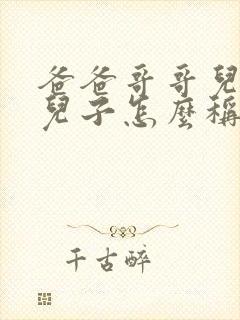 爸爸哥哥兒
兒子怎麼稱
千古醉